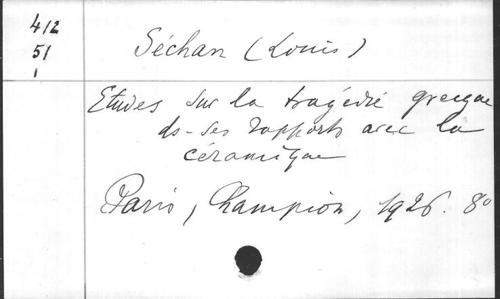 412
51
1
Séchan (Louis)
Etudes sur la tragédie grecque
ds ses rapports avec la
céramique
Paris, Champion, 1926. 8°